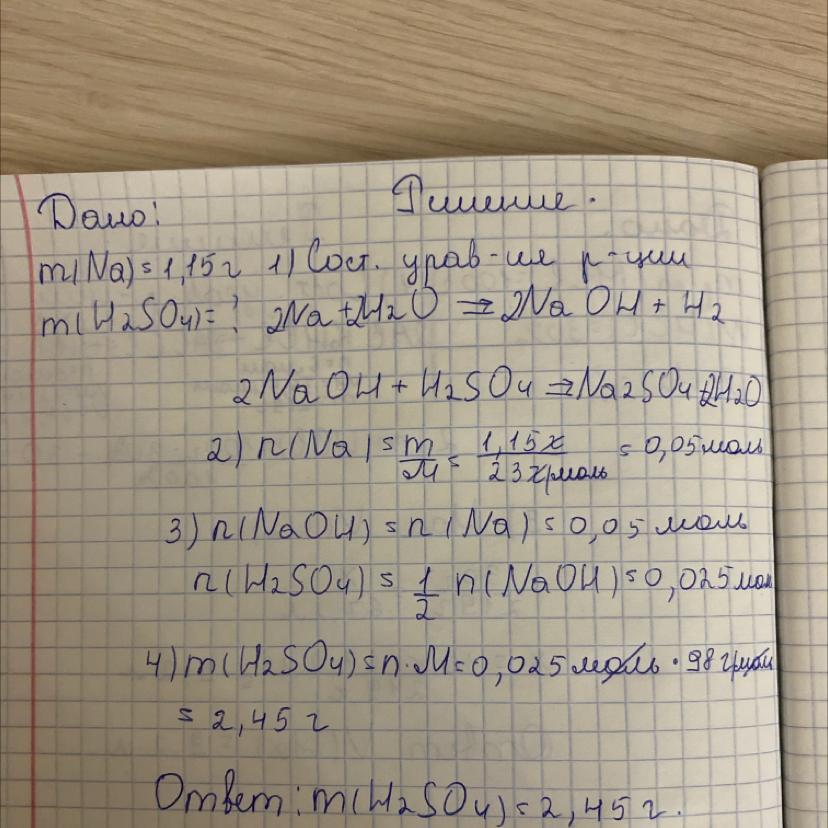 Дано: Решение.
m(Na)=1,15г 1) Сост. урав-ие р-ции
m(H2SO4)=? 2Na+2H2O ⇒ 2NaOH + H2
2NaOH + H2SO4 ⇒ Na2SO4+2H2O
2) n(Na)=m/M=1,15г/23г/моль=0,05моль
3) n(NaOH)=n(Na)=0,05 моль
n(H2SO4)=1/2 n(NaOH)=0,025мол
4) m(H2SO4)=n·M=0,025моль·98г/моль
=2,45 г
Ответ: m(H2SO4)=2,45 г.